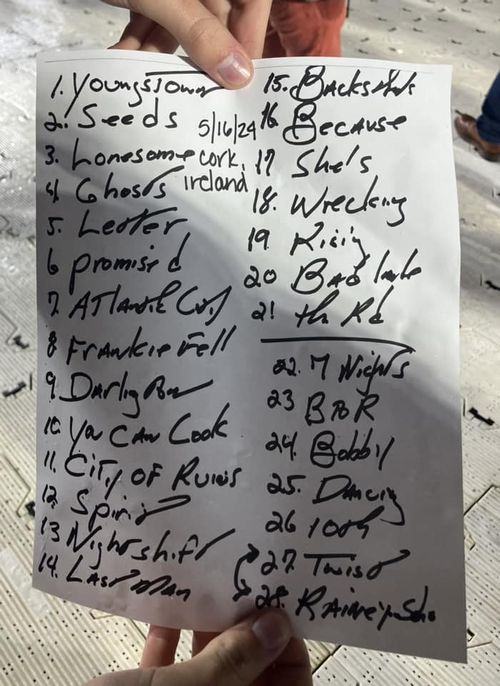 1. Youngstown
2. Seeds
3. Lonesome
4 Ghosts
5. Letter
6 Promised
7. Atlantic City
8 Frankie Fell
9.
10. You Can Look
11. City of Ruins
12 Spirit
13 Nightshift
14. Last Man
5/16/24
cork,
ireland
15. Backstreets
16 Because
17 She's
18. Wrecking
19 Rising
20 Badlands
21 Th Rd
22. 7 Nights
23 BTR
24. Bobby
25. Dancing
26 10th
27. Twist
28.